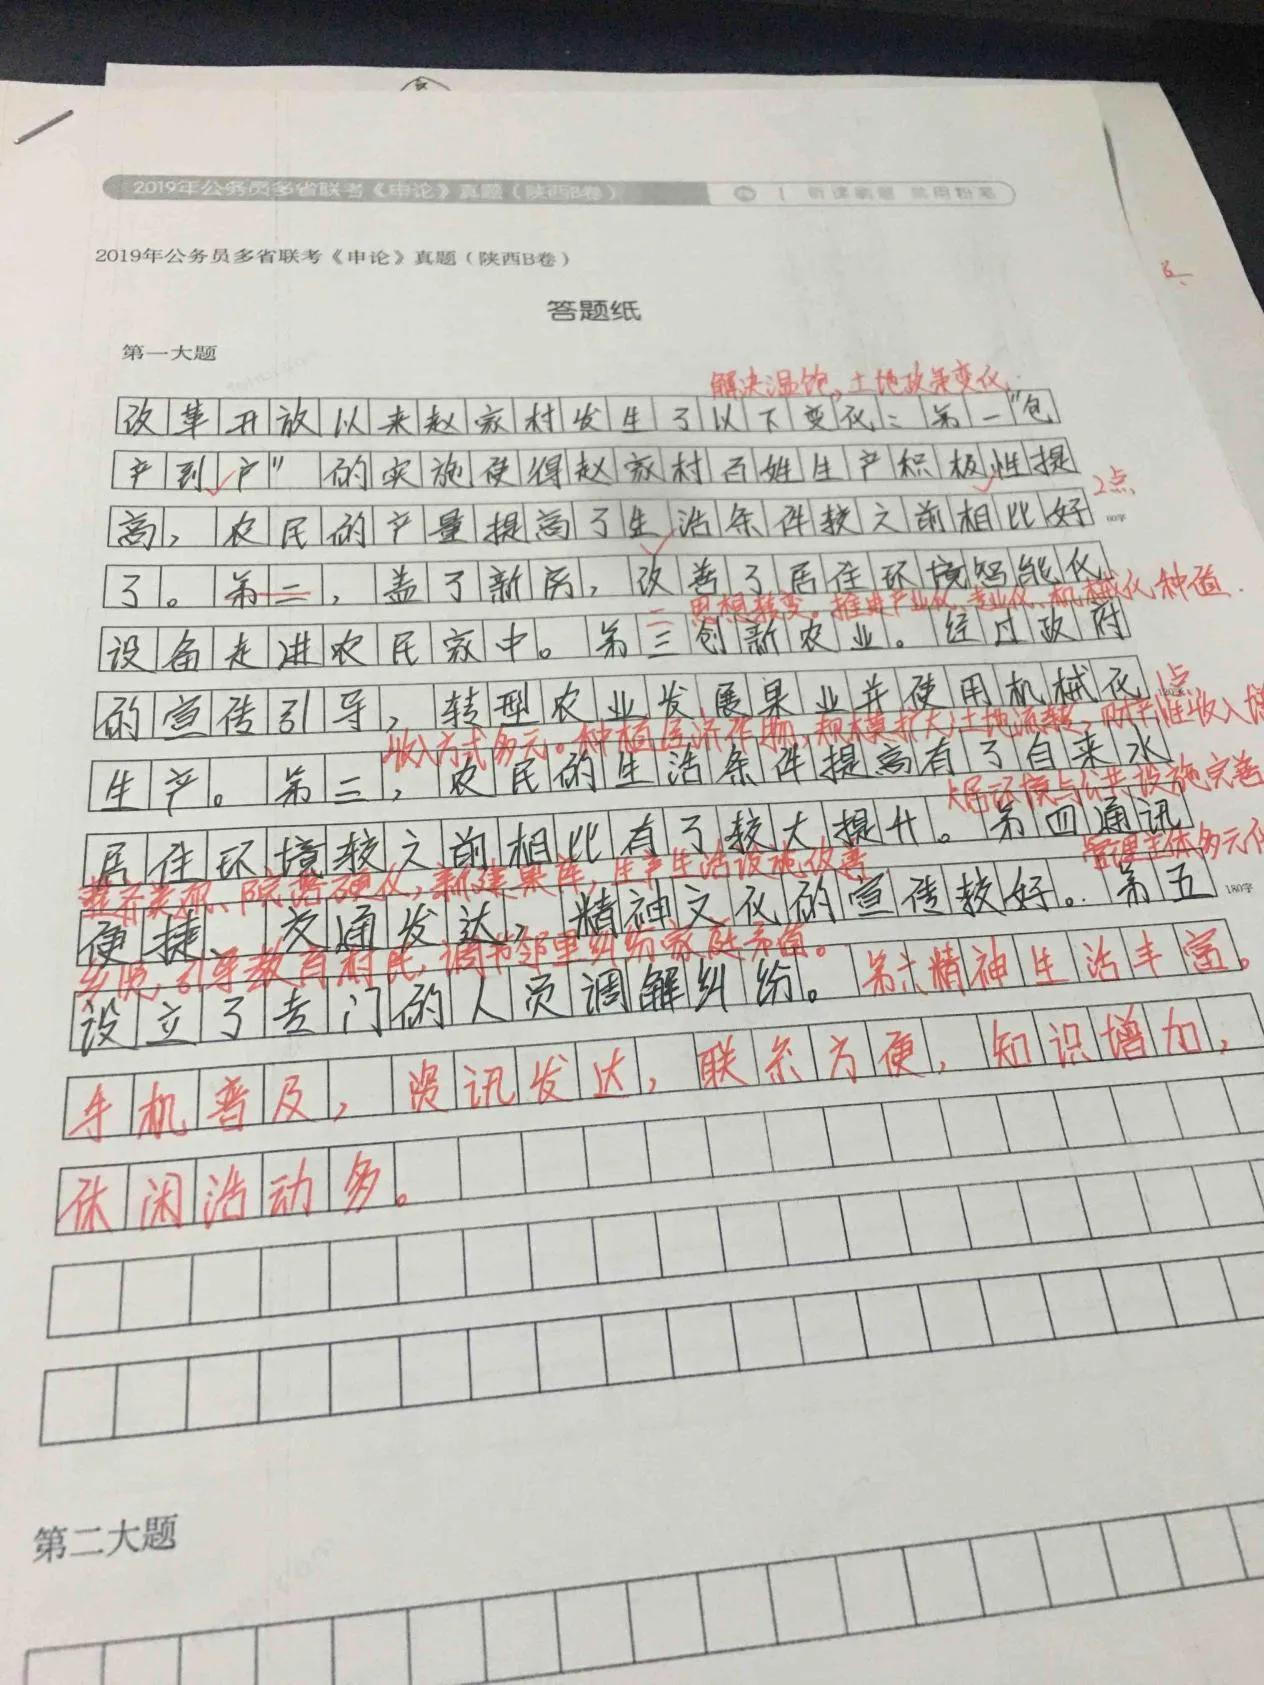 2019年公务员多省联考《申论》真题（陕西B卷）
2019年公务员多省联考《申论》真题（陕西B卷）
答题纸
第一大题
解决温饱，土地政策变化
改革开放以来赵家村发生了以下变化：第一"包
产到户"的实施使得赵家村百姓生产积极性提
2点
高，农民的产量提高了生活条件较之前相比好
60字
了。第二，盖了新房，改善了居住环境智能化
二思想转变。推进产业化、专业化、机械化种植.
设备走进农民家中。第三创新农业。经过政府
的宣传引导，转型农业发展果业并使用机械化
1点
收入方式多元。种植经济作物，规模扩大，土地流转，财产性收入增
生产。第三，农民的生活条件提高有了自来水
居环境与公共设施完善
居住环境较之前相比有了较大提升。第四通讯
管理主体多元化
院落硬化，新建果库，生产生活设施改善
便捷、交通发达，精神文化的宣传较好。第五
180字
引导教育村民，调节邻里纠纷家庭矛盾。
设立了专门的人员调解纠纷。第六精神生活丰富。
手机普及，资讯发达，联系方便，知识增加，
休闲活动多。
第二大题